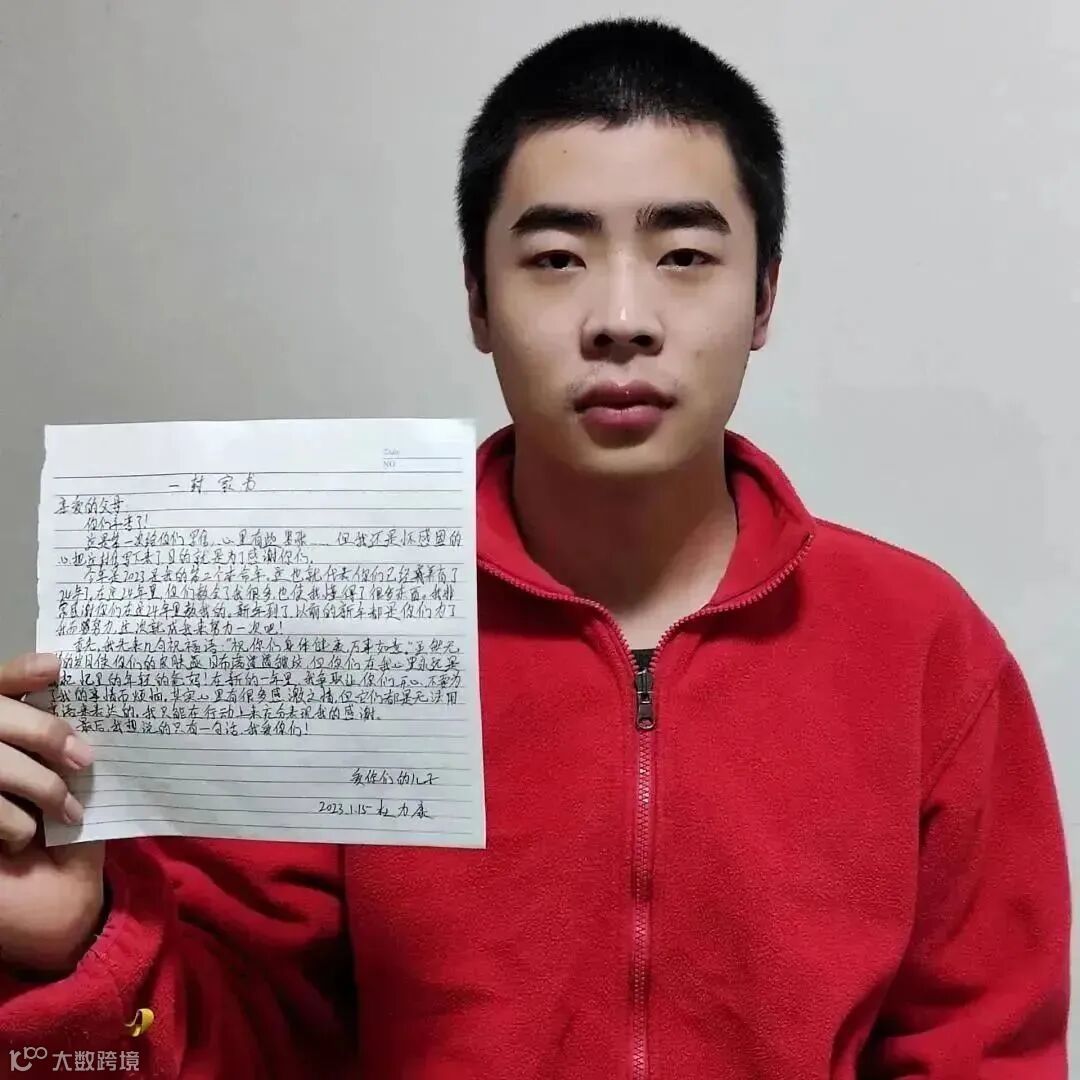 Date
NO
一封家书
亲爱的父母:
你们辛苦了!
这是第一次给你们写信,心里有些
但我还是怀感恩的
心把这封信写下来了目的就是为了感谢你们。
今年是2023是我的第二个本命年,这也就代表你们已经养育了
24年了,在这24年里,你们教会了我很多也使我懂得了很多东西,我非
常感谢你们在这24年里教我的,新年到了,以前的新年都是你们为了
我而努力,这次就成我来努力一次吧!
首先,我先来几句祝福语:"祝你们身体健康,万事如意"虽然无
的岁月使你们的皮肤 但你们在我心里永远是
记忆里的年轻的爸妈!在新的一年里,我争取让你们 心,不要为
了我的事情而烦恼,其实心里有很多感激之情,但它们都是无法用
言语来表达的,我只能在行动上来充分表现我的感谢。
最后,我想说的只有一句话,我爱你们!
爱你们的儿子
2023.1.15 杜力康
大数跨境